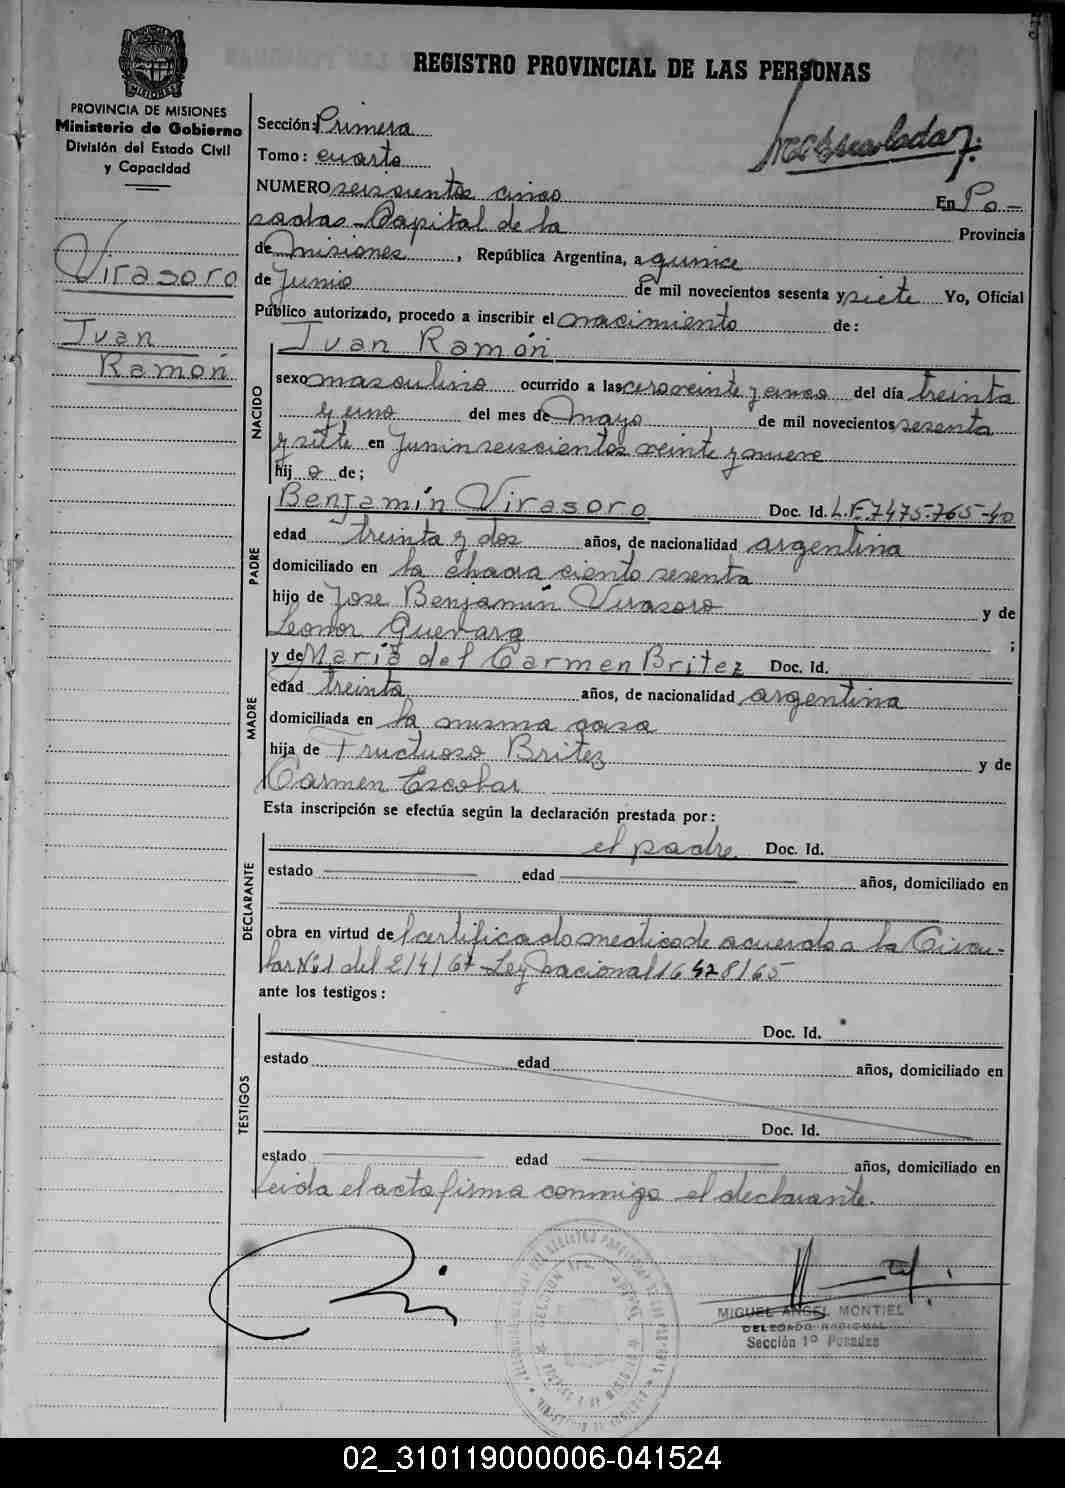 REGISTRO PROVINCIAL DE LAS PERSONAS
MISIONES
PROVINCIA DE MISIONES
Ministerio de Gobierno
División del Estado Civil
y Capacidad
Virasoro
Juan
Ramón
Sección: Primera
Tomo: cuarto
NUMERO seiscientos cinco En Po-
sadas-Capital de la Provincia
de Misiones, República Argentina, a quince
de Junio de mil novecientos sesenta y siete Yo, Oficial
Público autorizado, procedo a inscribir el nacimiento de:
NACIDO
Juan Ramón
sexo masculino ocurrido a las cero veinte y cinco del día treinta
y uno del mes de Mayo de mil novecientos sesenta
y siete en Junin seiscientos veinte y nueve
hij o de;
PADRE
Benjamín Virasoro Doc. Id. L.E. 7475-765-40
edad treinta y dos años, de nacionalidad argentina
domiciliado en la chacra ciento sesenta
hijo de Jose Benjamín Virasoro y de
Leonor Guevara ;
MADRE
y de María del Carmen Britez Doc. Id.
edad treinta años, de nacionalidad argentina
domiciliada en la misma casa
hija de Fructuoso Britez y de
Carmen Escobar
Esta inscripción se efectúa según la declaración prestada por:
DECLARANTE
el padre Doc. Id.
estado edad años, domiciliado en
obra en virtud del certificado medico de acuerdo a la Circu-
lar Nº1 del 2/4/67-Ley Nacional 16428/65
ante los testigos:
TESTIGOS
Doc. Id.
estado edad años, domiciliado en
Doc. Id.
estado edad años, domiciliado en
Leida el acta firma conmigo el declarante.
MIGUEL ANGEL MONTIEL
DELEGADO REGIONAL
Sección 1º Posadas
02_310119000006-041524